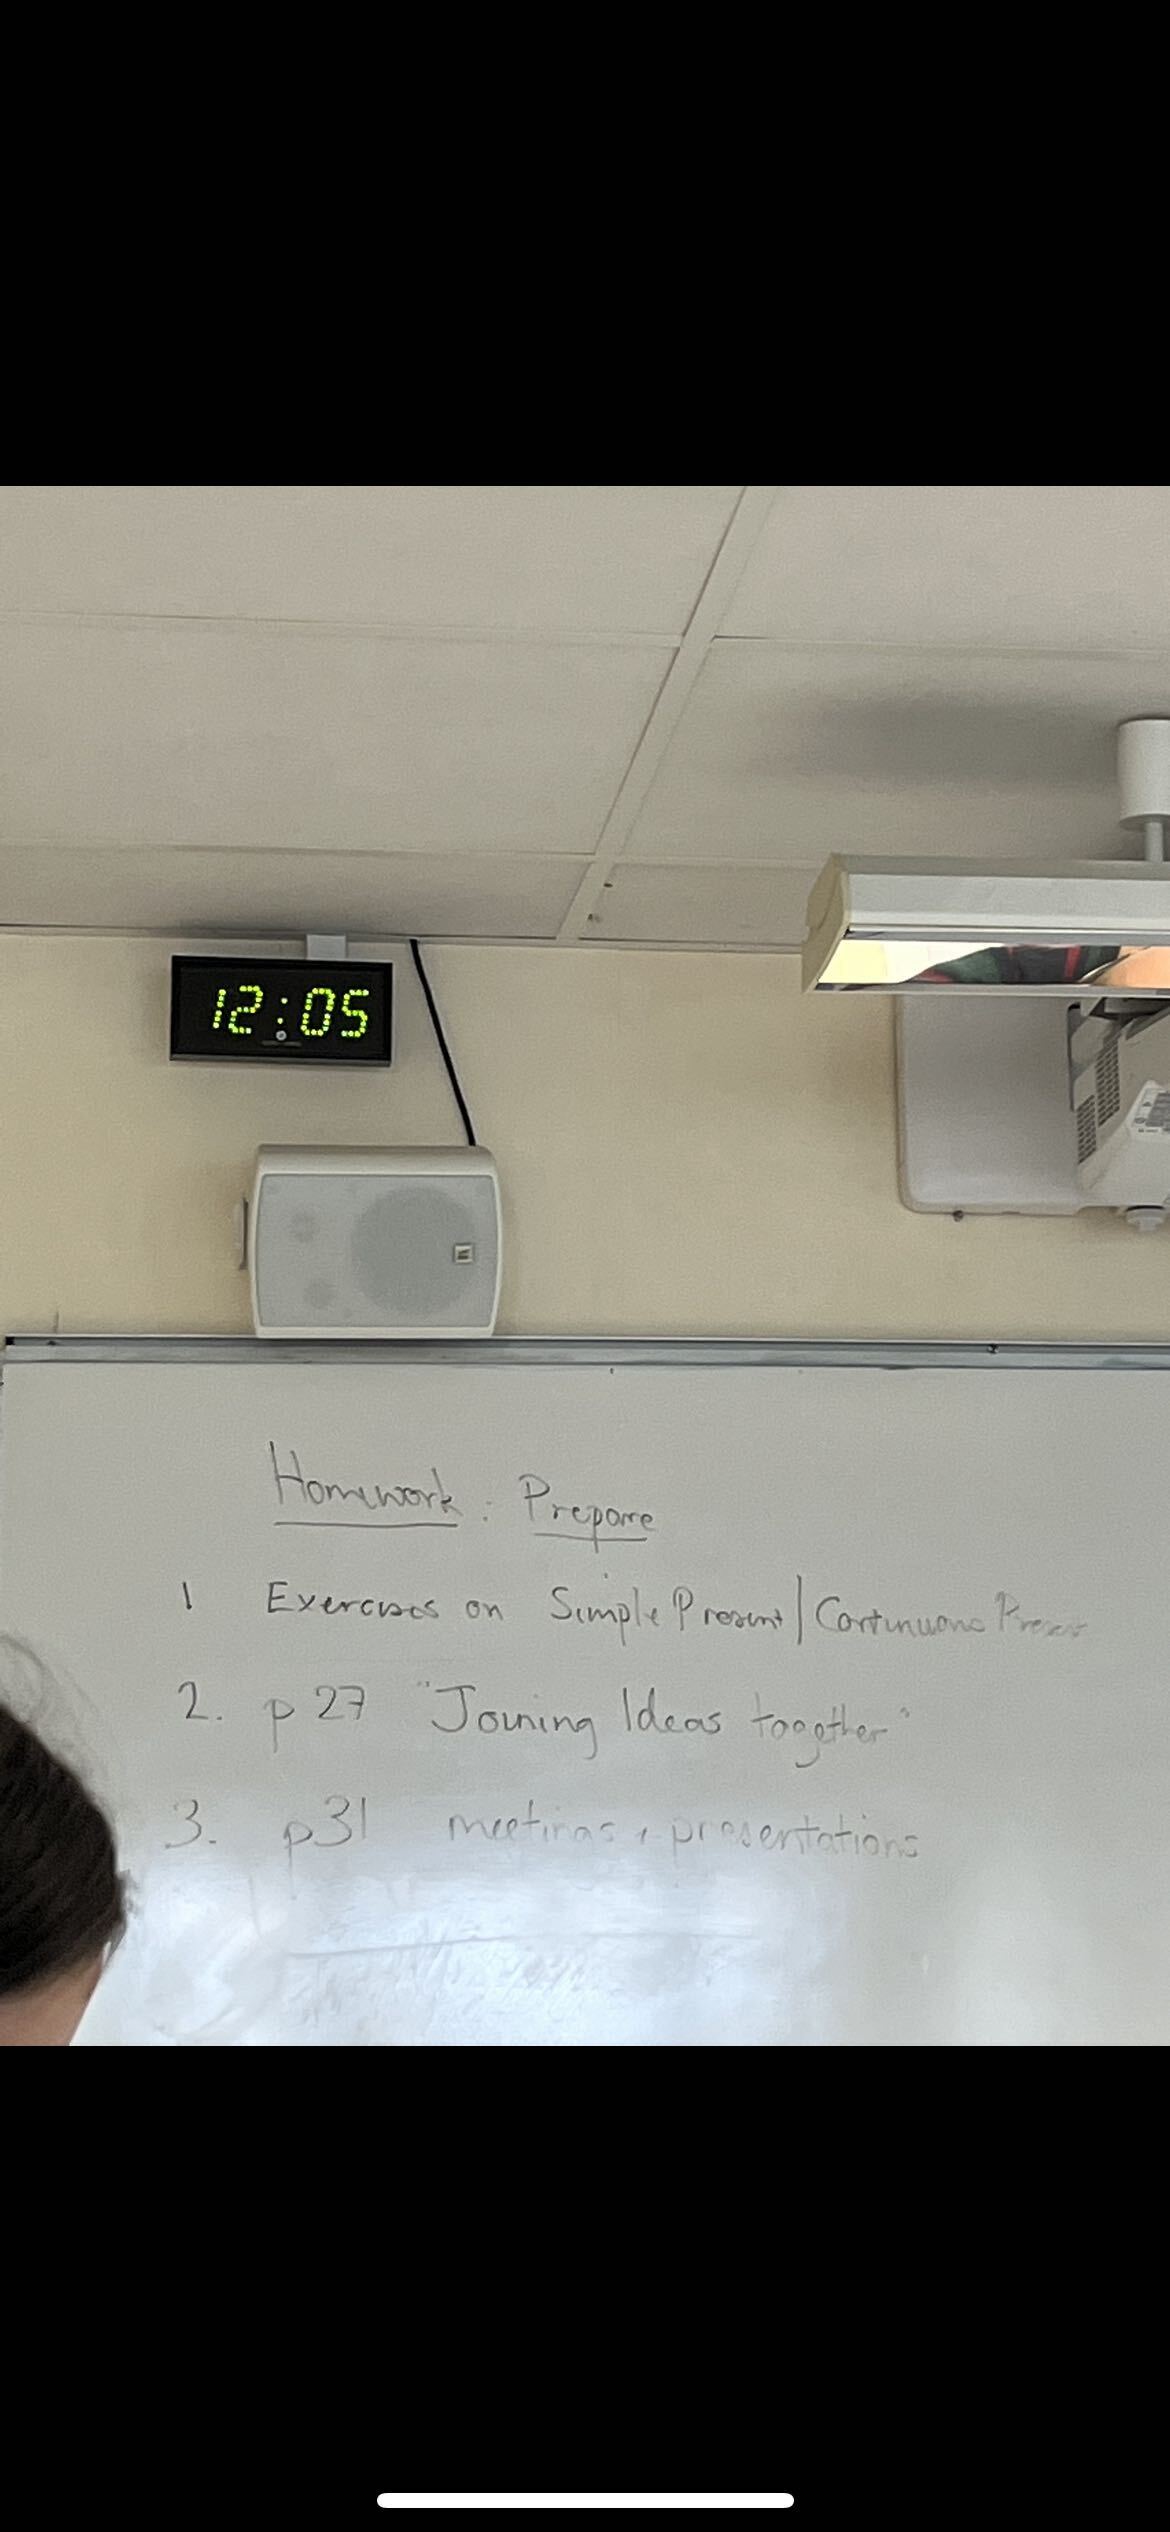 12:05
Homework: Prepare
1 Exercises on Simple Present/Continuous Present
2. p 27 "Joining Ideas together"
3. p31 meetings + presentations